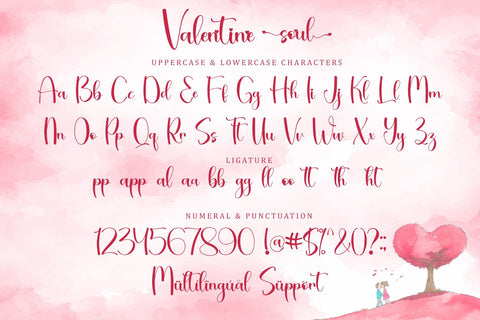 Valentine soul
UPPERCASE & LOWERCASE CHARACTERS
Aa Bb Cc Dd Ee Ff Gg Hh Ii Jj Kk Ll Mm
Nn Oo Pp Qq Rr Ss Tt Uu Vv Ww Xx Yy Zz
LIGATURE
pp app al aa bb gg ll oo tt th ht
NUMERAL & PUNCTUATION
1234567890 !@#$%^&()?:;
Multilingual Support